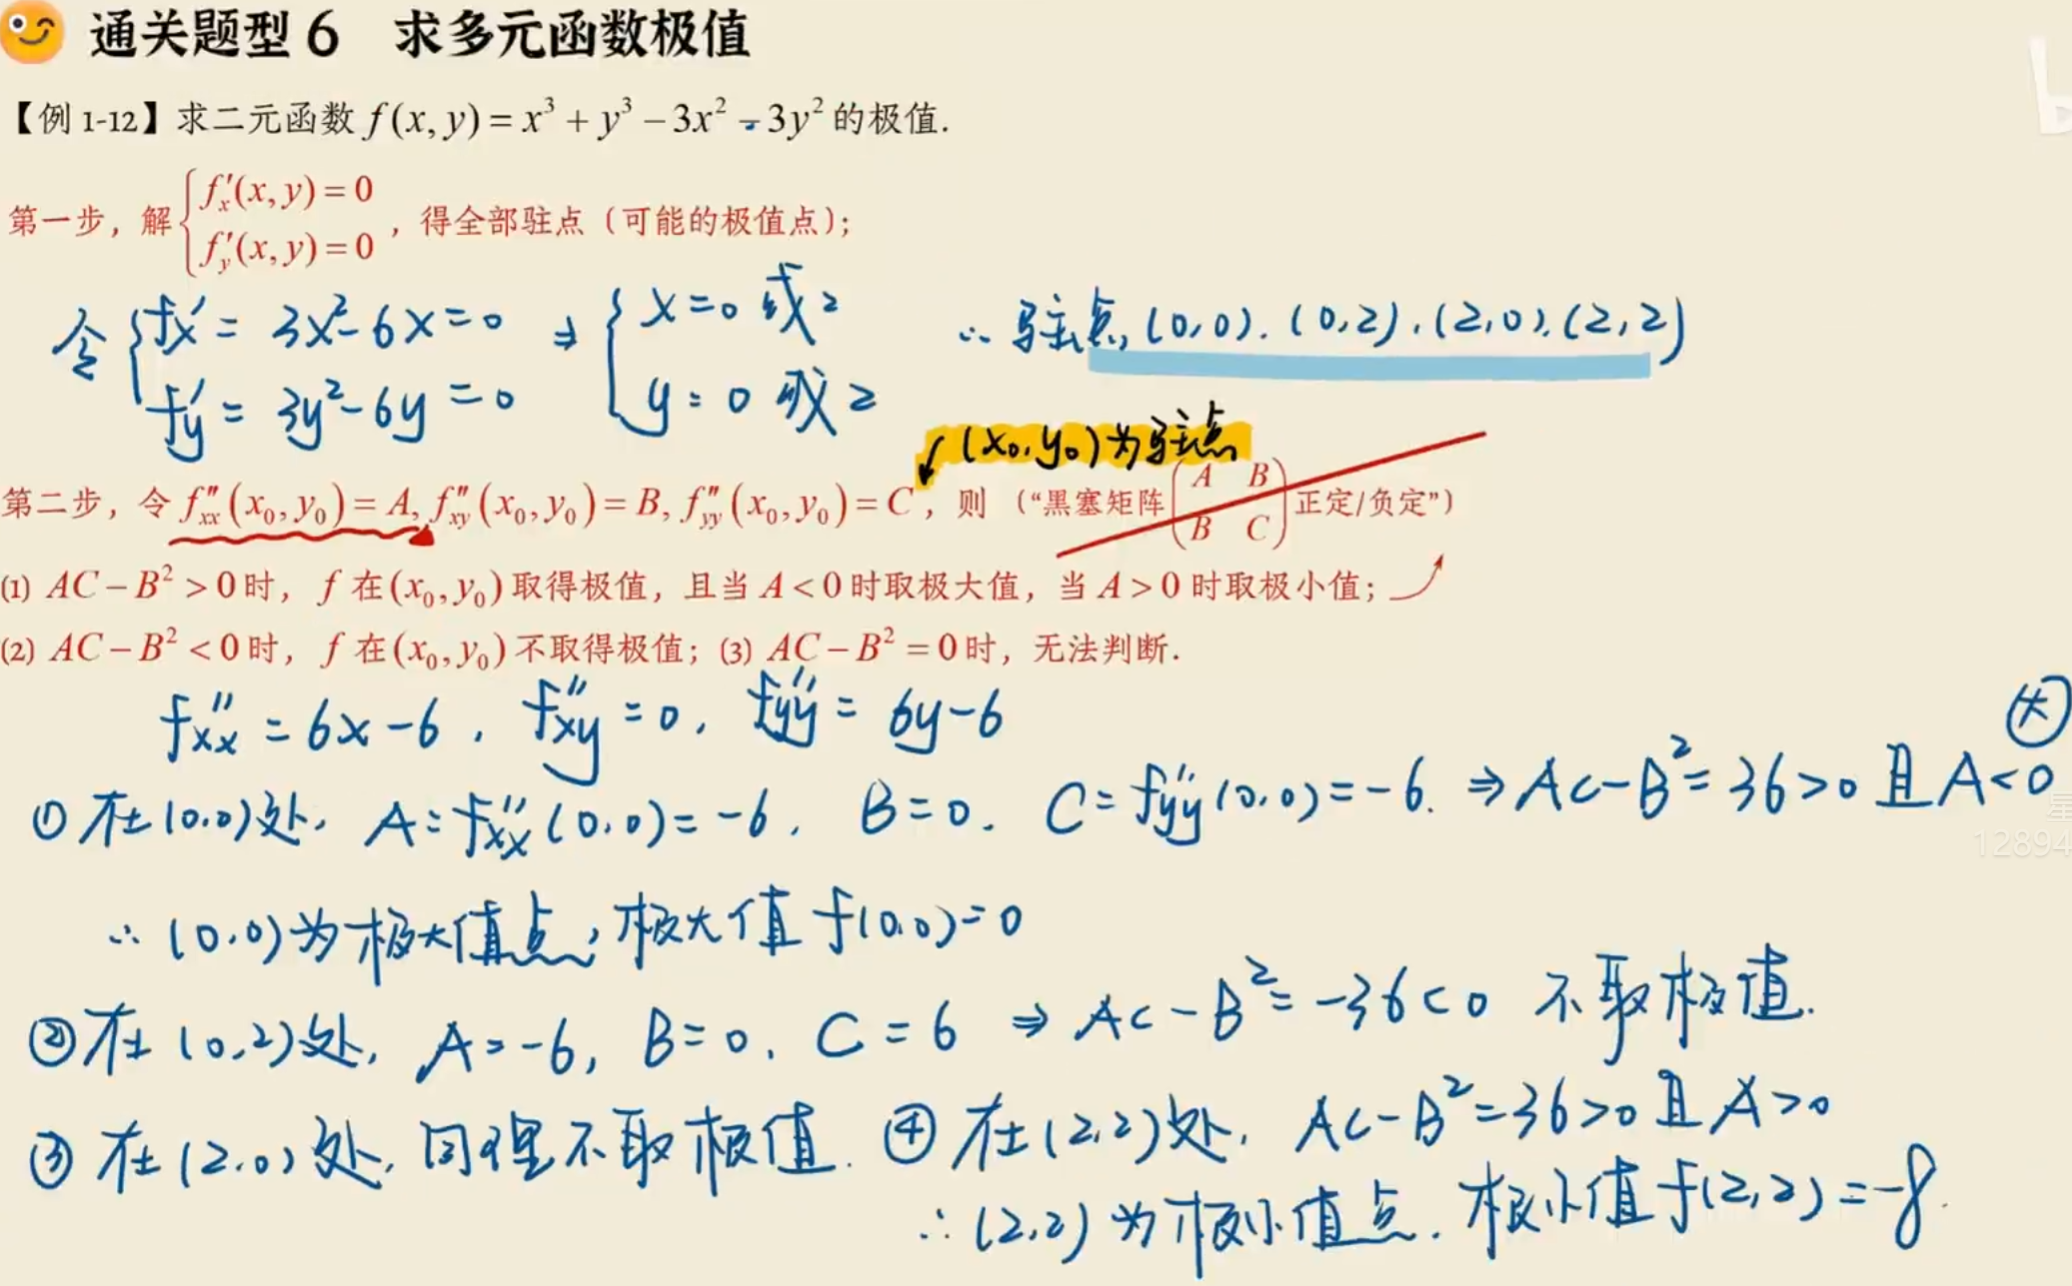 通关题型 6 求多元函数极值
【例 1-12】求二元函数 f(x, y) = x³ + y³ − 3x² − 3y² 的极值.
第一步，解 { f′ₓ(x, y) = 0, f′ᵧ(x, y) = 0 ，得全部驻点（可能的极值点）；
令 { fx′ = 3x²-6x=0 ⇒ { x=0 或2 ∴ 驻点 (0,0). (0,2), (2,0), (2,2)
fy′ = 3y²-6y=0 y=0 或2
(x₀,y₀)为驻点
第二步，令 f″xx(x₀, y₀) = A, f″xy(x₀, y₀) = B, f″yy(x₀, y₀) = C ，则（“黑塞矩阵 (A B; B C) 正定/负定”）
(1) AC − B² > 0 时，f 在 (x₀, y₀) 取得极值，且当 A < 0 时取极大值，当 A > 0 时取极小值；
(2) AC − B² < 0 时，f 在 (x₀, y₀) 不取得极值；(3) AC − B² = 0 时，无法判断.
fxx″ = 6x-6, fxy″ = 0, fyy″ = 6y-6
大
① 在(0,0)处, A = fxx″(0,0) = -6, B=0. C = fyy″(0,0) = -6. ⇒ AC-B² = 36>0 且 A<0
12894
∴ (0,0)为极大值点, 极大值 f(0,0)=0
② 在(0,2)处, A=-6, B=0, C=6 ⇒ AC-B² = -36<0 不取极值.
③ 在(2,0)处, 同理不取极值. ④ 在(2,2)处, AC-B²=36>0且A>0
∴ (2,2)为极小值点. 极小值 f(2,2)=-8.